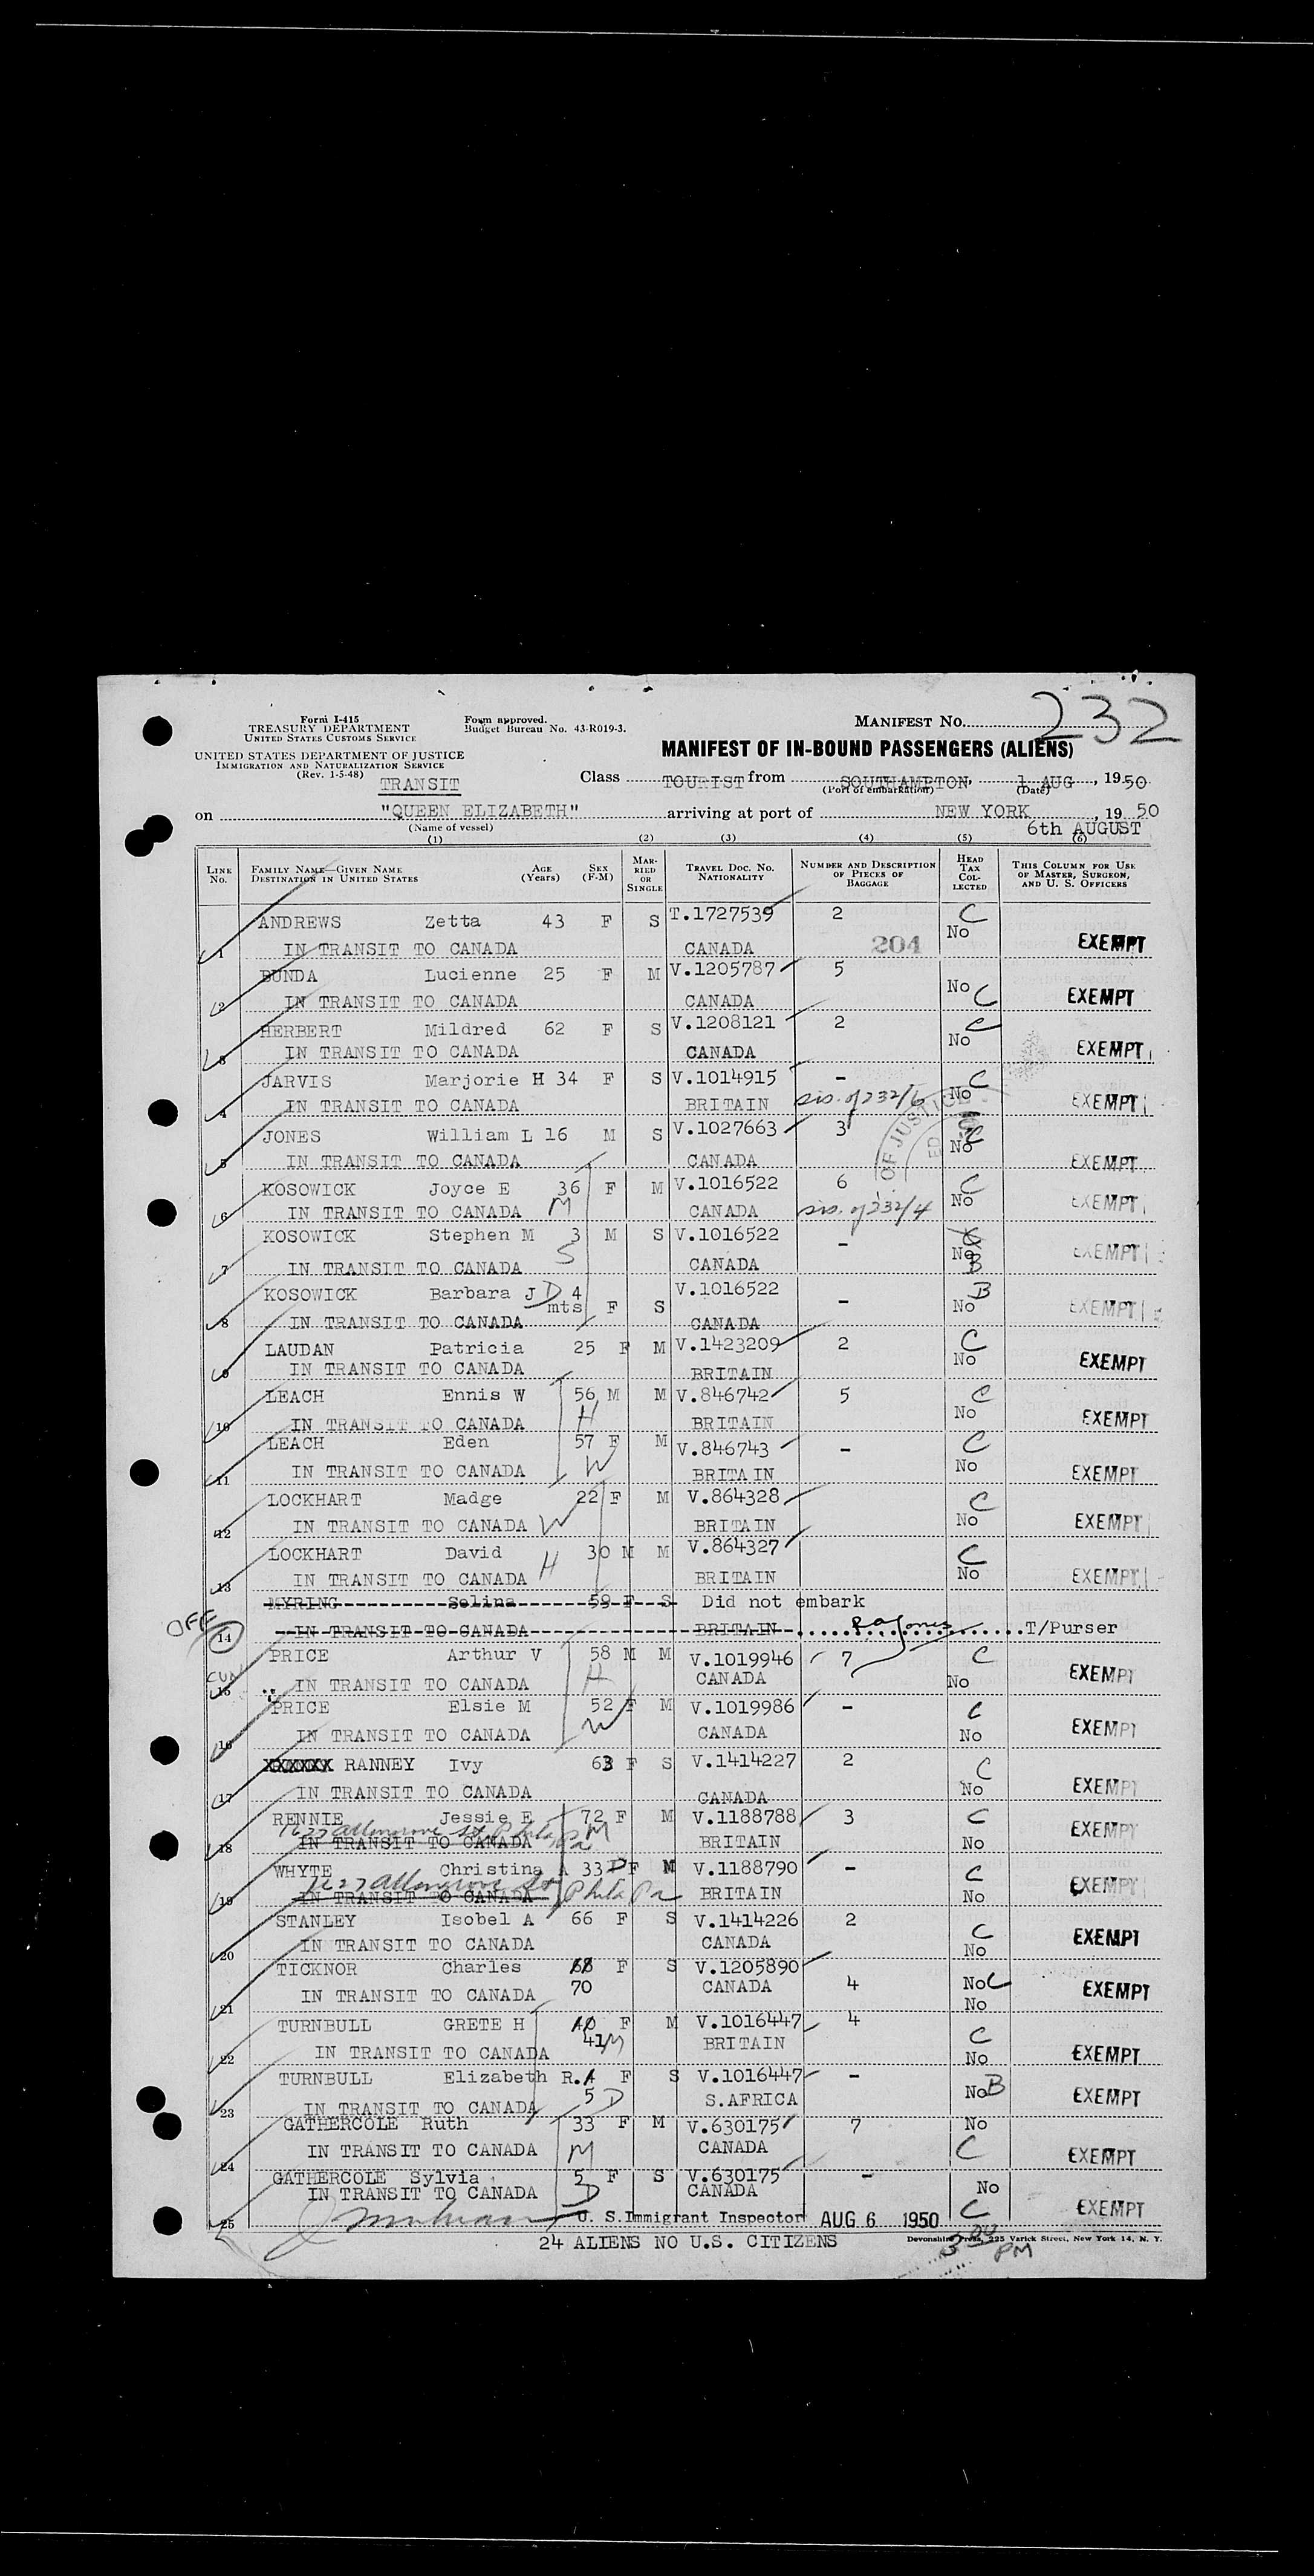 Form I-415
TREASURY DEPARTMENT
UNITED STATES CUSTOMS SERVICE
Form approved.
Budget Bureau No. 43-R019-3.
MANIFEST NO. 232
UNITED STATES DEPARTMENT OF JUSTICE
IMMIGRATION AND NATURALIZATION SERVICE
(Rev. 1-5-48)
MANIFEST OF IN-BOUND PASSENGERS (ALIENS)
TRANSIT
Class TOURIST from SOUTHAMPTON, 1 AUG, 1950
(Port of embarkation) (Date)
on "QUEEN ELIZABETH" arriving at port of NEW YORK, 1950
(Name of vessel) 6th AUGUST
(1) (2) (3) (4) (5) (6)
LINE NO. FAMILY NAME—GIVEN NAME DESTINATION IN UNITED STATES AGE (Years) SEX (F-M) MARRIED OR SINGLE TRAVEL DOC. NO. NATIONALITY NUMBER AND DESCRIPTION OF PIECES OF BAGGAGE HEAD TAX COLLECTED THIS COLUMN FOR USE OF MASTER, SURGEON, AND U. S. OFFICERS
ANDREWS Zetta 43 F S T.1727539 2 C
1 IN TRANSIT TO CANADA CANADA 204 No EXEMPT
BUNDA Lucienne 25 F M V.1205787 5 No
2 IN TRANSIT TO CANADA CANADA C EXEMPT
HERBERT Mildred 62 F S V.1208121 2 C
3 IN TRANSIT TO CANADA CANADA No EXEMPT
JARVIS Marjorie H 34 F S V.1014915 - C
4 IN TRANSIT TO CANADA BRITAIN sis. of 232/6 No EXEMPT
OF JUSTICE
JONES William L 16 M S V.1027663 3 C
5 IN TRANSIT TO CANADA CANADA No EXEMPT
KOSOWICK Joyce E 36 F M V.1016522 6 C
6 IN TRANSIT TO CANADA M CANADA sis. of 232/4 No EXEMPT
KOSOWICK Stephen M 3 M S V.1016522 -
7 IN TRANSIT TO CANADA S CANADA No B EXEMPT
KOSOWICK Barbara J D 4 mts F S V.1016522 - B
8 IN TRANSIT TO CANADA CANADA No EXEMPT
LAUDAN Patricia 25 F M V.1423209 2 C
9 IN TRANSIT TO CANADA BRITAIN No EXEMPT
LEACH Ennis W 56 M M V.846742 5 C
10 IN TRANSIT TO CANADA H BRITAIN No EXEMPT
LEACH Eden 57 F M V.846743 - C
11 IN TRANSIT TO CANADA W BRITAIN No EXEMPT
LOCKHART Madge 22 F M V.864328 C
12 IN TRANSIT TO CANADA W BRITAIN No EXEMPT
LOCKHART David 30 M M V.864327 C
13 IN TRANSIT TO CANADA H BRITAIN No EXEMPT
MYRING Selina 59 F S Did not embark
OFF 14 IN TRANSIT TO CANADA BRITAIN T/Purser
PRICE Arthur V 58 M M V.1019946 7 C
15 IN TRANSIT TO CANADA H CANADA No EXEMPT
PRICE Elsie M 52 F M V.1019986 - C
16 IN TRANSIT TO CANADA W CANADA No EXEMPT
XXXXXX RANNEY Ivy 63 F S V.1414227 2 C
17 IN TRANSIT TO CANADA CANADA No EXEMPT
RENNIE Jessie E 72 F M V.1188788 3 C
18 IN TRANSIT TO CANADA M BRITAIN No EXEMPT
WHYTE Christina A 33 D F M V.1188790 - C
19 IN TRANSIT TO CANADA Phila Pa BRITAIN No EXEMPT
STANLEY Isobel A 66 F S V.1414226 2 C
20 IN TRANSIT TO CANADA CANADA No EXEMPT
TICKNOR Charles F S V.1205890 4 No C
21 IN TRANSIT TO CANADA 70 CANADA No EXEMPT
TURNBULL GRETE H F M V.1016447 4 C
22 IN TRANSIT TO CANADA 41 M BRITAIN No EXEMPT
TURNBULL Elizabeth R. F S V.1016447 - No B
23 IN TRANSIT TO CANADA 5 D S.AFRICA EXEMPT
GATHERCOLE Ruth 33 F M V.630175 7 No
24 IN TRANSIT TO CANADA M CANADA C EXEMPT
GATHERCOLE Sylvia 5 F S V.630175 - No
25 IN TRANSIT TO CANADA D CANADA C EXEMPT
U. S. Immigrant Inspector AUG 6 1950
24 ALIENS NO U.S. CITIZENS
Devonshire Press, 225 Varick Street, New York 14, N. Y.
3 00 PM